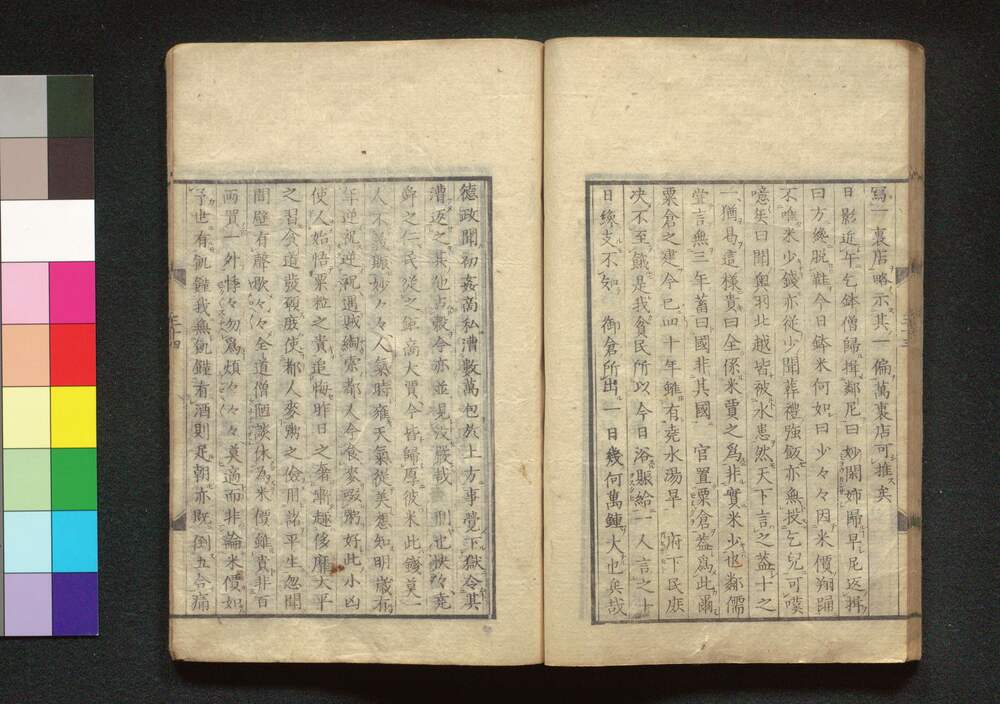 寫一裏店略示其一偏萬裏店可推矣
日影近午乞鉢僧歸揖鄰尼曰妙閑姉歸早尼返揖
曰方纔脫鞋今日鉢米何如曰少々因米價翔踊
不唯米少錢亦從少聞葬禮強飯亦無投乞兒可嘆
噫矣曰聞奧羽北越皆被水患然天下言之益十之
一猶易這樣貴曰全係米賈之爲非實米少也鄰儒
嘗言無三年蓄曰國非其國 官置粟倉益爲此爾
粟倉之建今已四十年雖有堯水湯旱 府下民庶
決不至餓是我食民所以今日浴賑給一人言之十
日纔支不知 御倉所出一日幾何萬鍾大也矣哉
德政聞初姦商私漕數萬包於上方事覺下獄令其
漕返之其他占穀今亦並見沒厳哉 刑也
舜之仁民從之鉅商大賈今皆歸厚彼米此錢莫一
人不義賑妙々々人氣時雍天氣從美想知明歲有
年逆祝逆祝遇賊綯索都人今食麥啜粥好此小凶
使人始悟粟粒之貴追悔昨日之奢漸趨侈靡太平
之習食道發
間壁有聲歌々々全道僧個談休為米價雖貴非百
兩買一外悖々勿爲煩々々々莫適而非論米價如
予也有飢鐘我無飢鐘有酒則足朝亦既倒五合痛
三十三
三十四